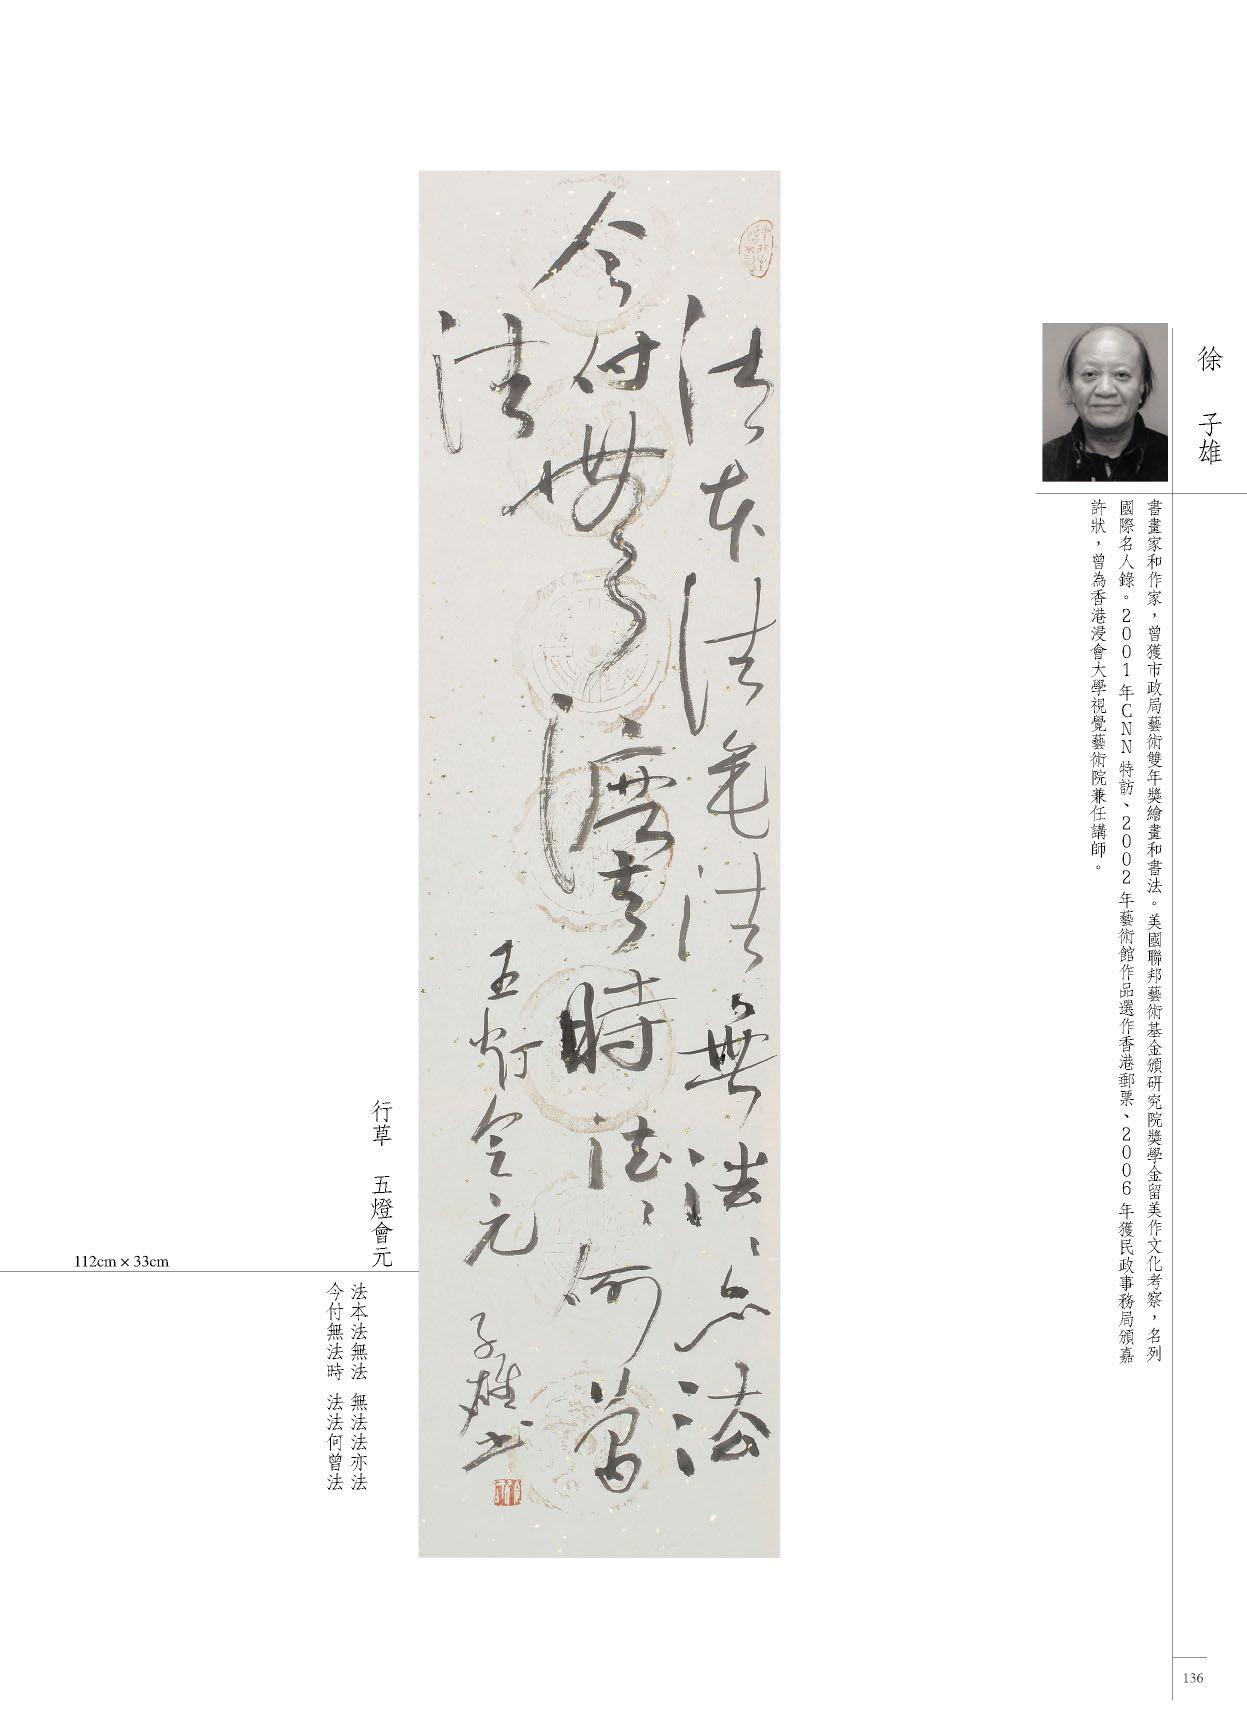 徐 子雄
書畫家和作家，曾獲市政局藝術雙年獎繪畫和書法。美國聯邦藝術基金頒研究院獎學金留美作文化考察，名列
國際名人錄。2001年CNN特訪、2002年藝術館作品選作香港郵票、2006年獲民政事務局頒嘉
許狀，曾為香港浸會大學視覺藝術院兼任講師。
法本法無法無法法亦法
今付無法時法法何曾
法
五灯會元
子雄書
行草 五燈會元
112cm × 33cm
法本法無法 無法法亦法
今付無法時 法法何曾法
136